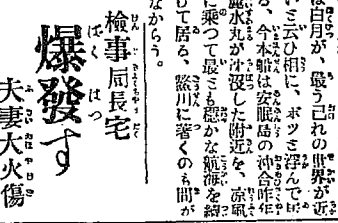 は白月が、最う己れの世界が近
いミ云ひ相に、ポツミ浮んで居
る、今本船は安眠島の沖合昨年
麗水丸が沈没した附近を、涼風
に乘つて最さも穩かな航海を續
して居る、鷲川に著くのも間が
なからう。
檢事局長宅
爆發す
夫妻大火傷